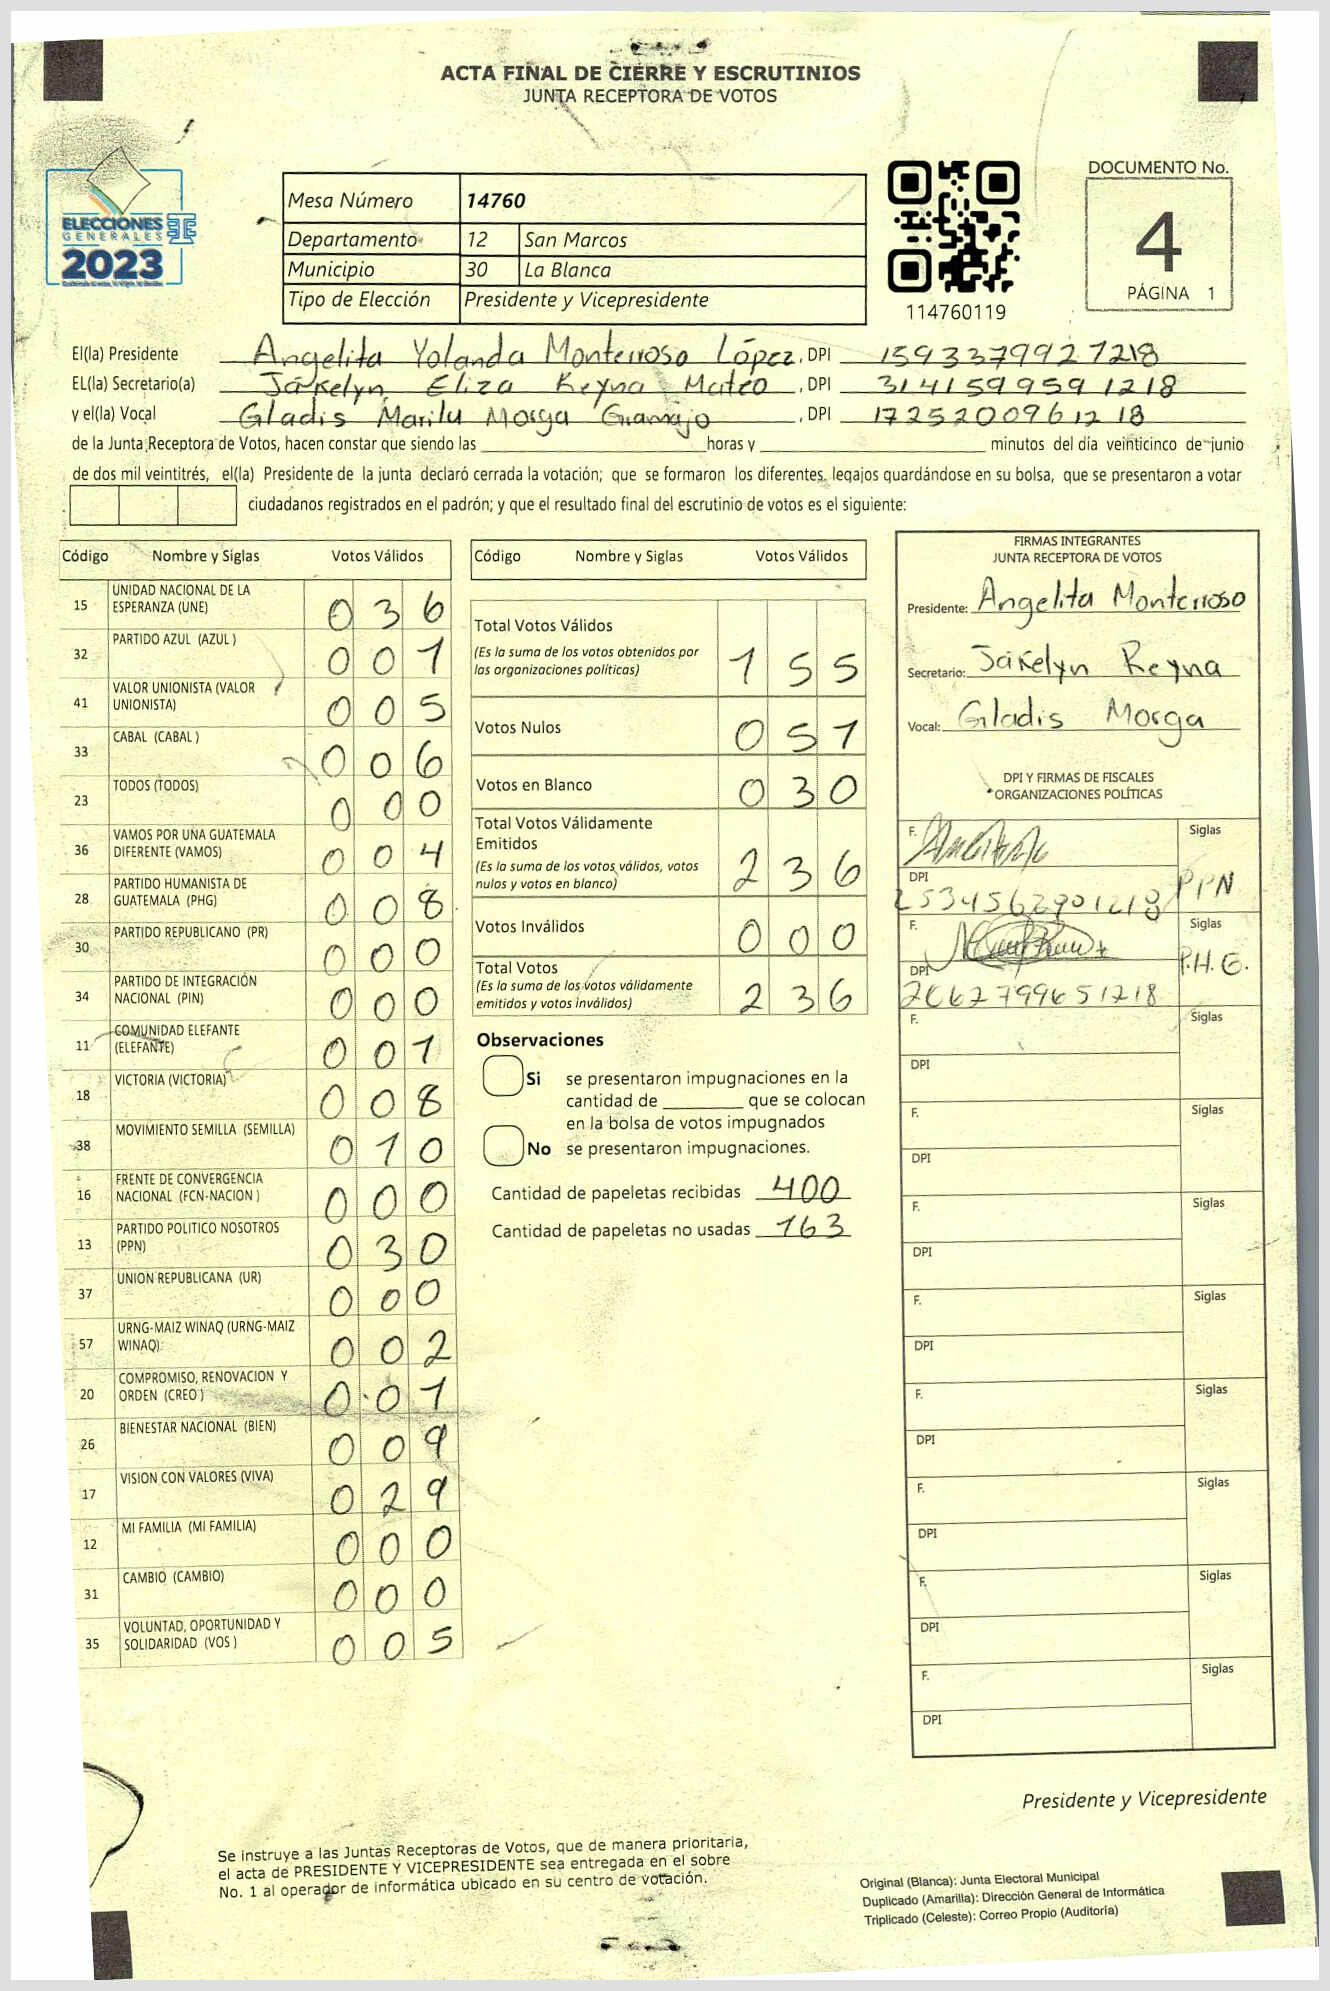 ACTA FINAL DE CIERRE Y ESCRUTINIOS
JUNTA RECEPTORA DE VOTOS
ELECCIONES
GENERALES
2023
Mesa Número 14760
Departamento 12 San Marcos
Municipio 30 La Blanca
Tipo de Elección Presidente y Vicepresidente
114760119
DOCUMENTO No.
4
PÁGINA 1
El(la) Presidente Angelita Yolanda Monterroso López, DPI 1593379927218
EL(la) Secretario(a) Jakelyn Eliza Reyna Mateo, DPI 3141599591218
y el(la) Vocal Gladis Marilu Morga Gramajo, DPI 1725200961218
de la Junta Receptora de Votos, hacen constar que siendo las horas y minutos del día veinticinco de junio
de dos mil veintitrés, el(la) Presidente de la junta declaró cerrada la votación; que se formaron los diferentes legajos guardándose en su bolsa, que se presentaron a votar
ciudadanos registrados en el padrón; y que el resultado final del escrutinio de votos es el siguiente:
Código Nombre y Siglas Votos Válidos
15 UNIDAD NACIONAL DE LA
ESPERANZA (UNE) 0 3 6
32 PARTIDO AZUL (AZUL ) 0 0 1
41 VALOR UNIONISTA (VALOR
UNIONISTA) 0 0 5
33 CABAL (CABAL ) 0 0 6
23 TODOS (TODOS) 0 0 0
36 VAMOS POR UNA GUATEMALA
DIFERENTE (VAMOS) 0 0 4
28 PARTIDO HUMANISTA DE
GUATEMALA (PHG) 0 0 8
30 PARTIDO REPUBLICANO (PR) 0 0 0
34 PARTIDO DE INTEGRACIÓN
NACIONAL (PIN) 0 0 0
11 COMUNIDAD ELEFANTE
(ELEFANTE) 0 0 1
18 VICTORIA (VICTORIA) 0 0 8
38 MOVIMIENTO SEMILLA (SEMILLA) 0 1 0
16 FRENTE DE CONVERGENCIA
NACIONAL (FCN-NACION ) 0 0 0
13 PARTIDO POLITICO NOSOTROS
(PPN) 0 3 0
37 UNION REPUBLICANA (UR) 0 0 0
57 URNG-MAIZ WINAQ (URNG-MAIZ
WINAQ) 0 0 2
20 COMPROMISO, RENOVACION Y
ORDEN (CREO ) 0 0 1
26 BIENESTAR NACIONAL (BIEN) 0 0 9
17 VISION CON VALORES (VIVA) 0 2 9
12 MI FAMILIA (MI FAMILIA) 0 0 0
31 CAMBIO (CAMBIO) 0 0 0
35 VOLUNTAD, OPORTUNIDAD Y
SOLIDARIDAD (VOS ) 0 0 5
Código Nombre y Siglas Votos Válidos
Total Votos Válidos
(Es la suma de los votos obtenidos por
las organizaciones políticas) 1 5 5
Votos Nulos 0 5 1
Votos en Blanco 0 3 0
Total Votos Válidamente
Emitidos
(Es la suma de los votos válidos, votos
nulos y votos en blanco) 2 3 6
Votos Inválidos 0 0 0
Total Votos
(Es la suma de los votos válidamente
emitidos y votos inválidos) 2 3 6
Observaciones
Si se presentaron impugnaciones en la
cantidad de que se colocan
en la bolsa de votos impugnados
No se presentaron impugnaciones.
Cantidad de papeletas recibidas 400
Cantidad de papeletas no usadas 163
FIRMAS INTEGRANTES
JUNTA RECEPTORA DE VOTOS
Presidente: Angelita Monterroso
Secretario: Jakelyn Reyna
Vocal: Gladis Morga
DPI Y FIRMAS DE FISCALES
ORGANIZACIONES POLÍTICAS
F. Siglas
DPI PPN
2534562901218
F. Siglas
DPI P.H.G.
2062799651218
F. Siglas
DPI
F. Siglas
DPI
F. Siglas
DPI
F. Siglas
DPI
F. Siglas
DPI
F. Siglas
DPI
F. Siglas
DPI
F. Siglas
DPI
Presidente y Vicepresidente
Se instruye a las Juntas Receptoras de Votos, que de manera prioritaria,
el acta de PRESIDENTE Y VICEPRESIDENTE sea entregada en el sobre
No. 1 al operador de informática ubicado en su centro de votación.
Original (Blanca): Junta Electoral Municipal
Duplicado (Amarilla): Dirección General de Informática
Triplicado (Celeste): Correo Propio (Auditoría)